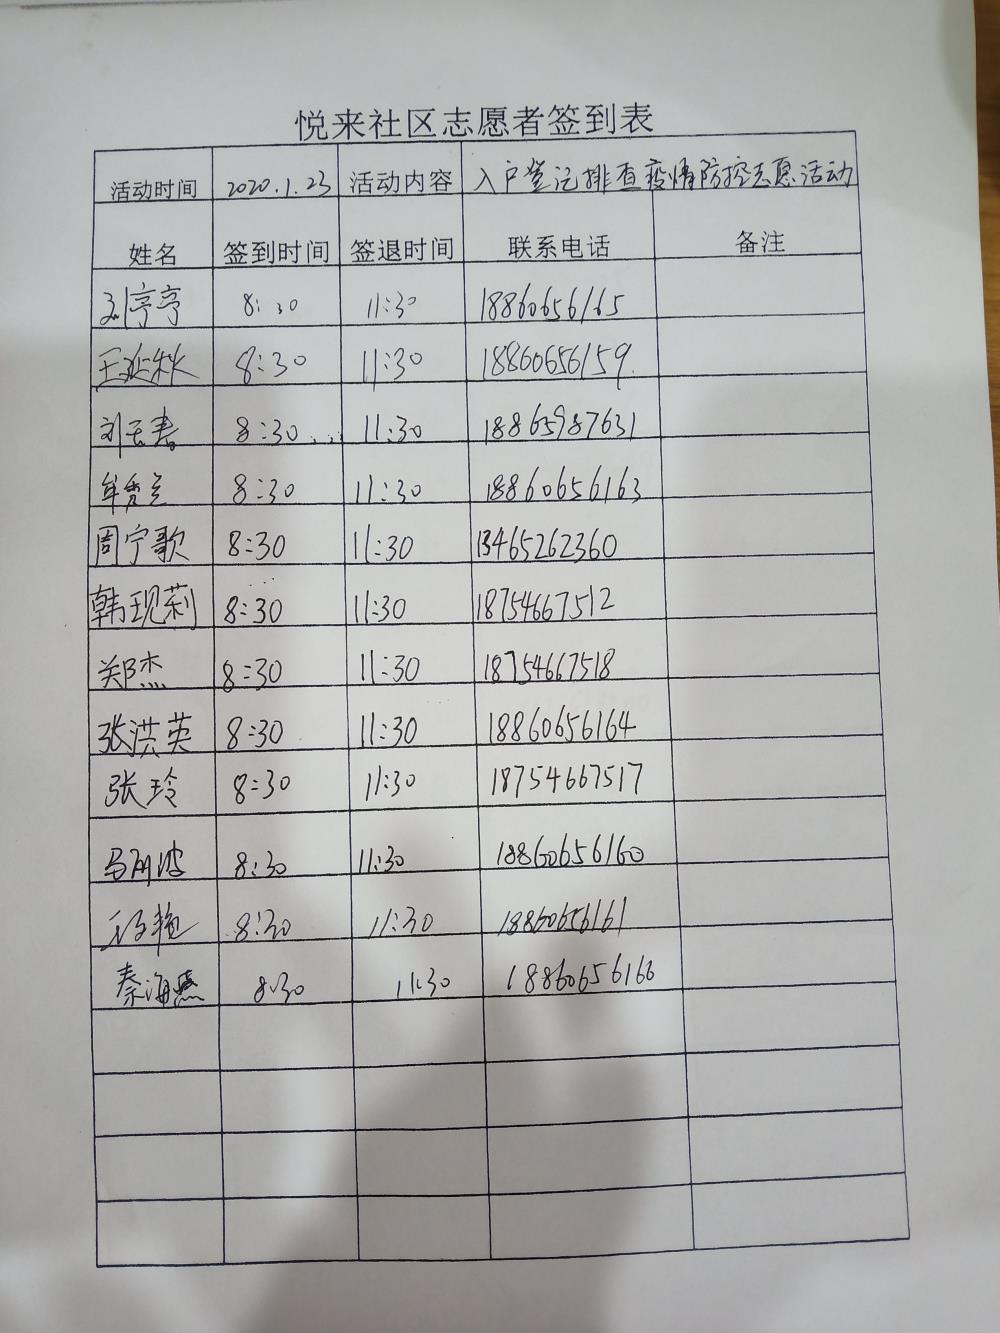 悦来社区志愿者签到表
活动时间 2020.1.23 活动内容 入户登记排查疫情防控志愿活动
姓名 签到时间 签退时间 联系电话 备注
刘亭亭 8:30 11:30 18860656165
王延秋 8:30 11:30 18860656159
刘玉春 8:30 11:30 18865987631
牟秀兰 8:30 11:30 18860656163
周宁歌 8:30 11:30 13465262360
韩现莉 8:30 11:30 18754667512
郑杰 8:30 11:30 18754667518
张洪英 8:30 11:30 18860656164
张玲 8:30 11:30 18754667517
8:30 11:30 18860656160
8:30 11:30 18860656161
秦海燕 8:30 11:30 18860656166